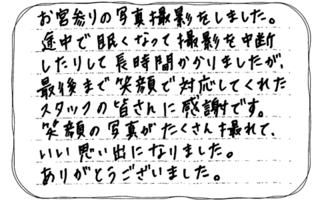 お宮参りの写真撮影をしました。
途中で眠くなって撮影を中断
したりして長時間かかりましたが、
最後まで笑顔で対応してくれた
スタッフの皆さんに感謝です。
笑顔の写真がたくさん撮れて、
いい思い出になりました。
ありがとうございました。